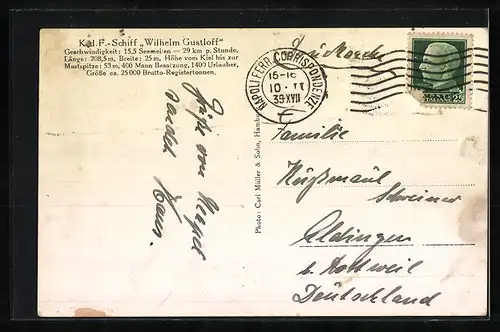 KdF.-Schiff „Wilhelm Gustloff"
Geschwindigkeit: 15,5 Seemeilen — 29 km p. Stunde,
Länge: 208,5 m, Breite: 25 m, Höhe vom Kiel bis zur
Mastspitze: 53 m, 400 Mann Besatzung, 1400 Urlauber,
Größe ca. 25 000 Brutto-Registertonnen,
Grüße von
Neapel
sendet
Hans.
Photo: Carl Müller & Sohn, Hambu
NAPOLI FERR. CORRISPONDENZE
15-16
10·II
39·XVII
Familie
Nüßmaul
Schreiner
Aldingen
b. Rottweil
Deutschland